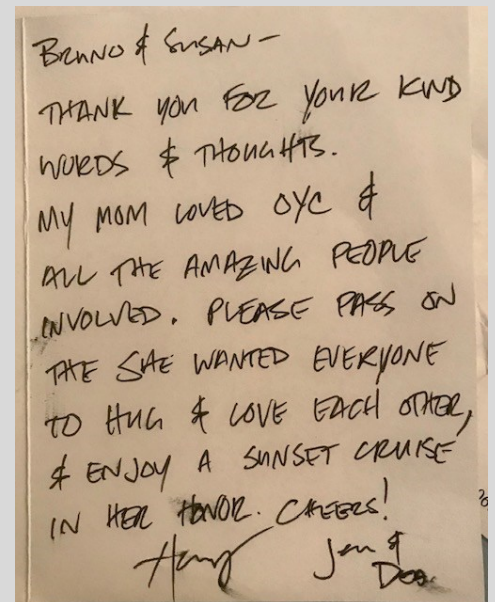 BRUNO & SUSAN –
THANK YOU FOR YOUR KIND
WORDS & THOUGHTS.
MY MOM LOVED OYC &
ALL THE AMAZING PEOPLE
INVOLVED. PLEASE PASS ON
THE SHE WANTED EVERYONE
TO HUG & LOVE EACH OTHER,
& ENJOY A SUNSET CRUISE
IN HER HONOR. CHEERS!
Jen &